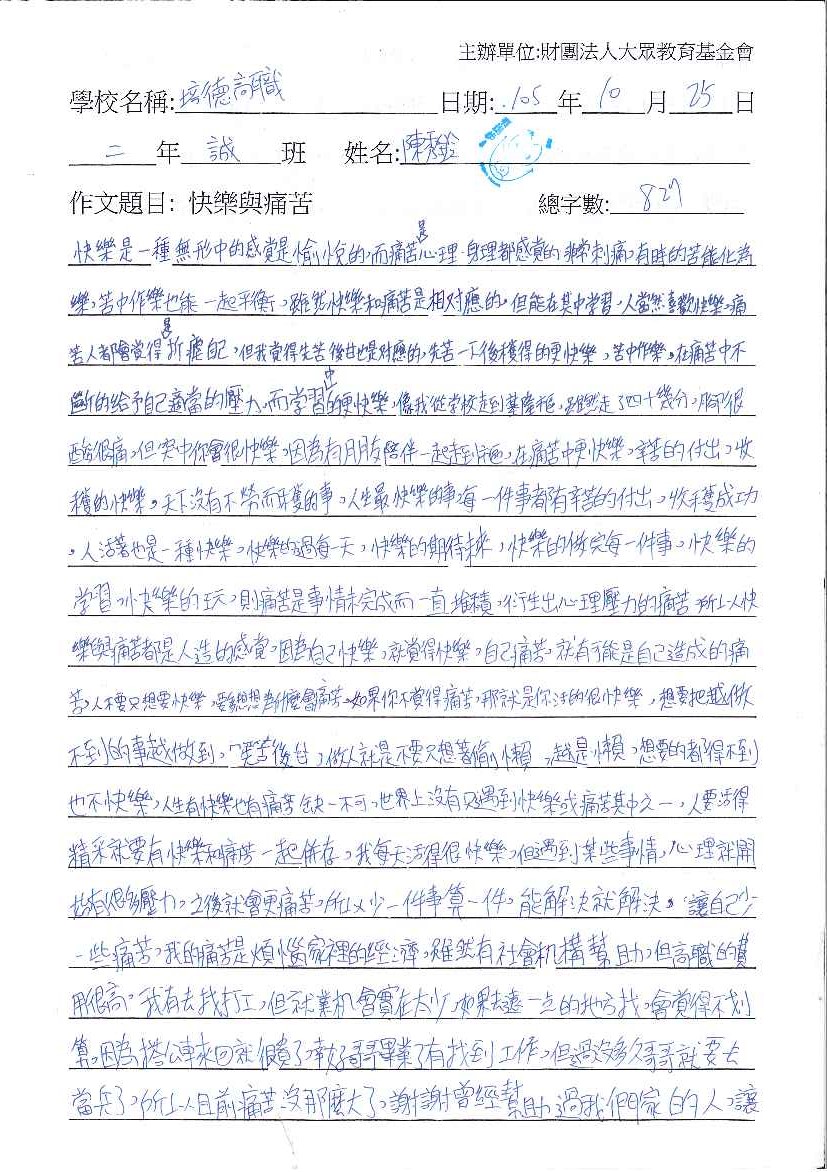 主辦單位:財團法人大眾教育基金會
學校名稱:培德高職 日期:105年10月25日
二年誠班 姓名:陳秀鈴
作文題目: 快樂與痛苦 總字數:827
快樂是一種無形中的感覺是愉悅的,而痛苦是心理、身理都感覺的非常刺痛,有時的苦能化為
樂,苦中作樂也能一起平衡,雖然快樂和痛苦是相對應的,但能在其中學習,人當然喜歡快樂,痛
苦人都會覺得是折磨自己,但我覺得先苦後甘也是对應的,先苦一下後穫得的更快樂,苦中作樂,在痛苦中不
斷的給予自己適當的壓力,而學習中的更快樂,像我從學校走到基隆 ,雖然走了四十幾分,腳很
酸很痛,但突中你會很快樂,因為有朋友陪伴一起走到 ,在痛苦中更快樂,辛苦的付出,收
穫的快樂。天下沒有不勞而穫的事,人生最快樂的事,每一件事都有辛苦的付出,收穫成功
。人活著也是一種快樂,快樂的過每一天,快樂的期待未來,快樂的做完每一件事。快樂的
學習,快樂的玩,則痛苦是事情未完成而一直堆積,衍生出心理壓力的痛苦,所以人快
樂與痛苦都是人造的感覺,因為自己快樂,就覺得快樂,自己痛苦,就有可能是自己造成的痛
苦,人不要只想要快樂,要想想為什麼會痛苦,如果你不覺得痛苦,那就是你活的很快樂,想要把越做
不到的事越做到。「先苦後甘」做人就是不要只想著偷懶,越是懶,想要的都得不到
也不快樂,人生有快樂也有痛苦缺一不可,世界上沒有只遇到快樂或痛苦其中之一,人要活得
精采就要有快樂和痛苦一起併存,我每天活得很快樂,但遇到某些事情,心理就開
始有很多壓力,之後就會更痛苦,所以少一件事算一件,能解決就解決。讓自己少
一些痛苦,我的痛苦是煩惱家裡的經濟,雖然有社會机構幫助,但高職的費
用很高。我有去找打工,但就業机會實在太少,如果去遠一点的地方找,會覺得不划
算,因為搭公車來回就很貴了,幸好哥哥畢業了有找到工作,但過沒多久哥哥就要去
當兵了,所以目前痛苦沒那麼大了,謝謝曾經幫助過我們家的人,讓